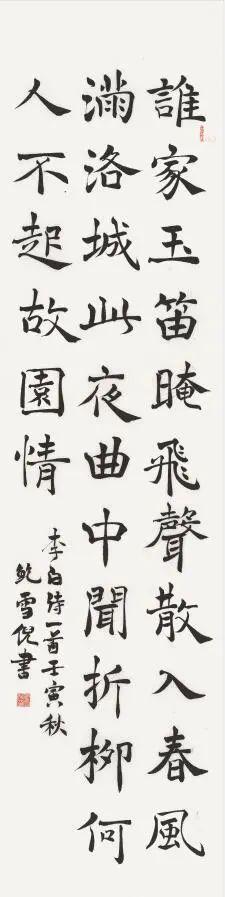 誰家玉笛晻飛聲散入春風
滿洛城此夜曲中聞折柳何
人不起故園情
李白詩一首壬寅秋
鮑雪倪書